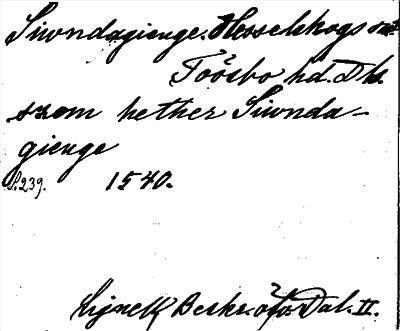 Siwndagienge. Hesselskogs sn
Töösbo hd. Dls.
suom hether Siwnda-
gienge
S. 239. 1540.
Lignell, Beskr. öfv. Dal. II.